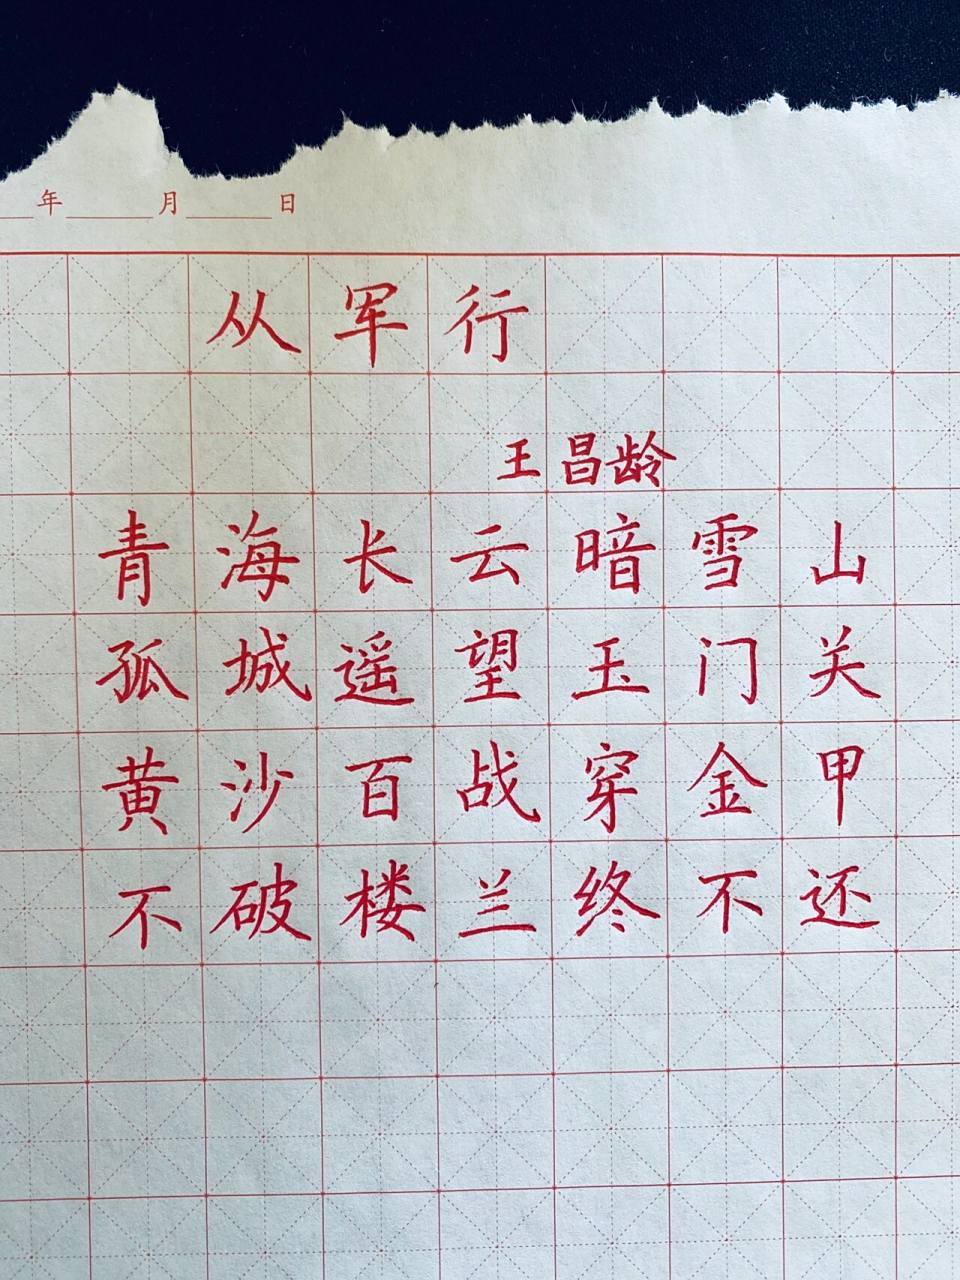 年 月 日
从军行
王昌龄
青海长云暗雪山
孤城遥望玉门关
黄沙百战穿金甲
不破楼兰终不还